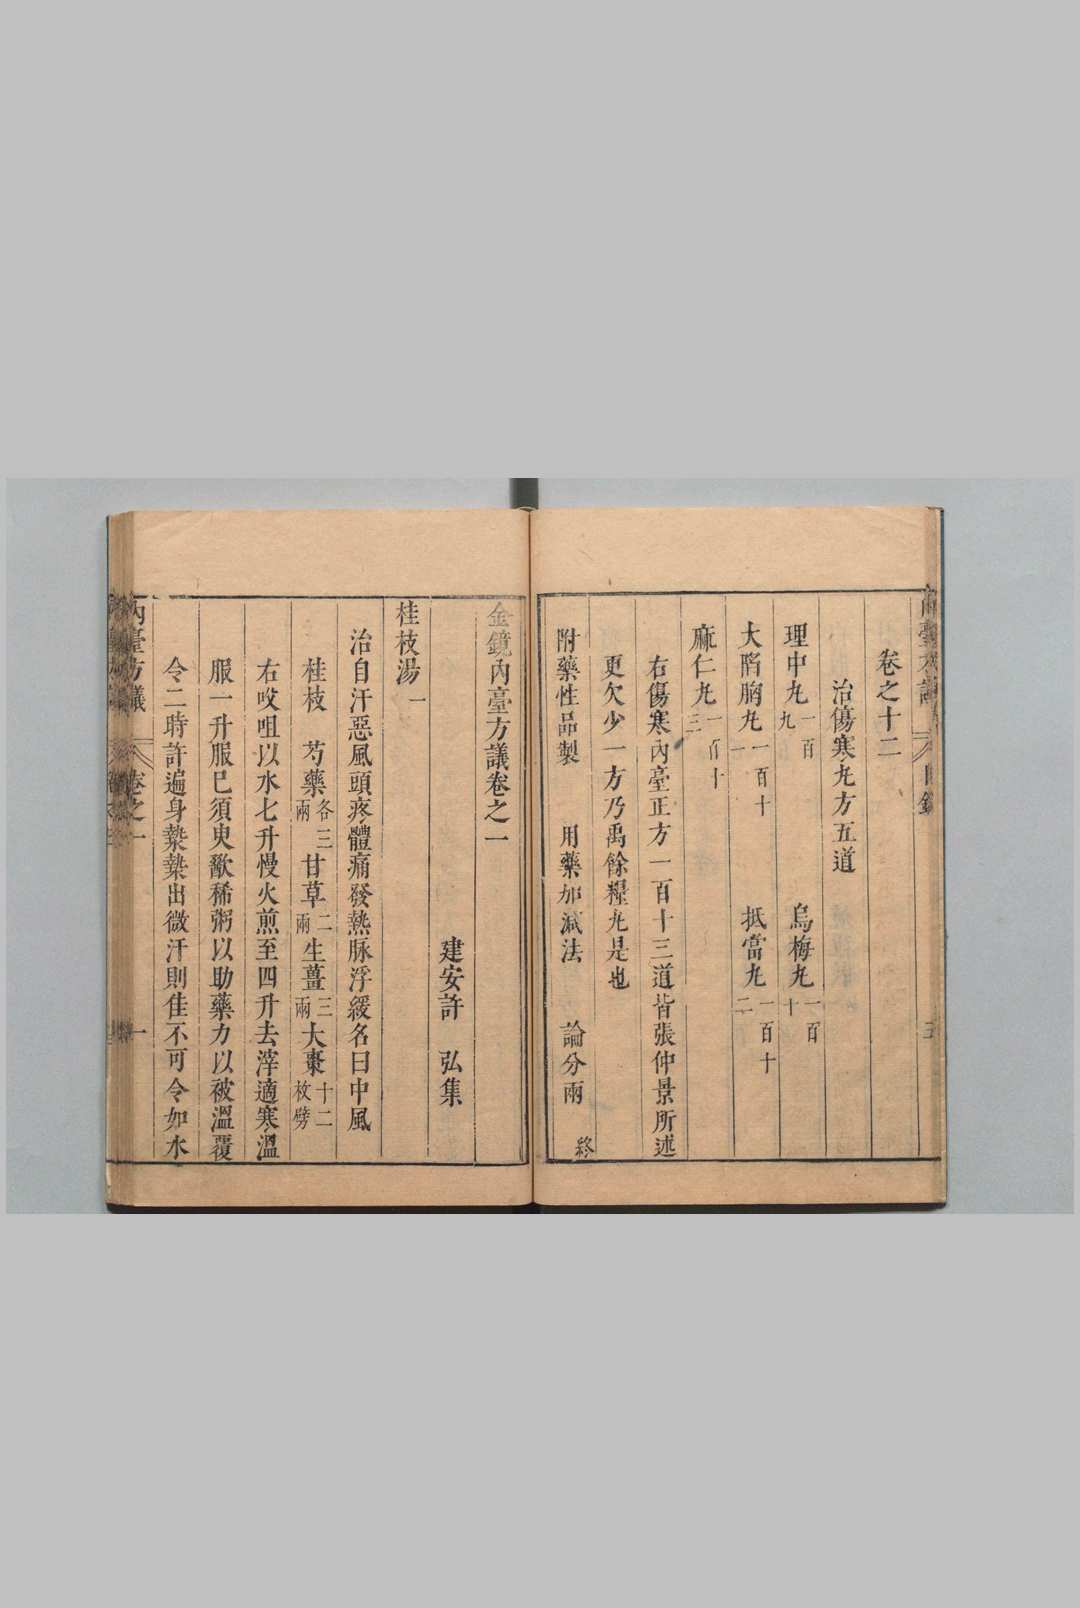 卷之十二
治傷寒丸方五道
理中丸一百九　烏梅丸一百十
大陷胸丸一百十一　抵當丸一百十二
麻仁丸一百十三
右傷寒內臺正方一百十三道皆張仲景所述
更欠少一方乃禹餘糧丸是也
附藥性品製　用藥加減法　論分兩　終
金鏡內臺方議卷之一
建安許　弘集
桂枝湯一
治自汗惡風頭疼體痛發熱脉浮緩名曰中風
桂枝　芍藥各三兩　甘草二兩　生薑三兩　大棗十二枚劈
右㕮咀以水七升慢火煎至四升去滓適寒溫
服一升服巳須臾歠稀粥以助藥力以被溫覆
令二時許遍身漐漐出微汗則佳不可令如水
內臺方議　卷之一　一